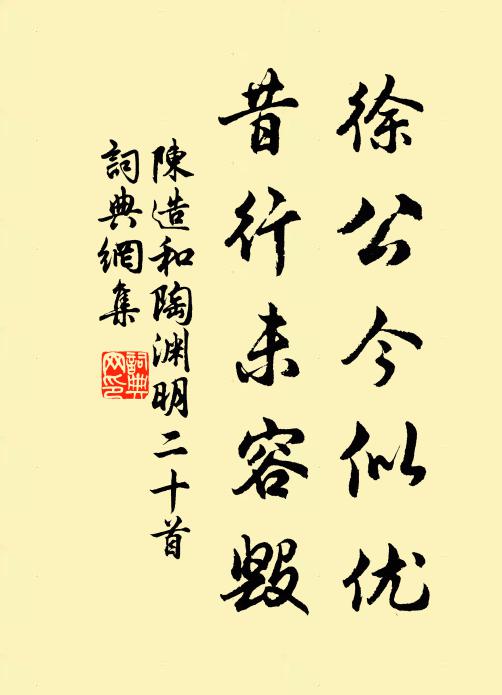 徐公今似优
昔行未容毁
陳造和陶渊明二十首
詞典網集
詞典网印